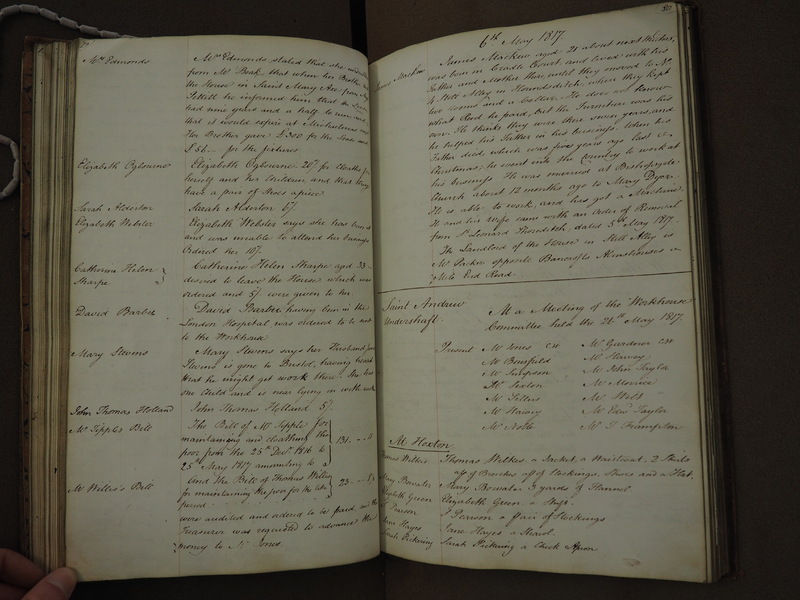 Mrs Edmonds
Mrs Edmonds stated that she
from Mr Book that when her Brother
the House in Saint Mary Axe from Mr
he informed him that the Lease
had nine years and a half to run and
that it would expire at Michaelmas
Her Brother gave £300 for the Lease and
£ 56 .. for the fixtures
Elizabeth Ogbourne
Elizabeth Ogbourne 20/ for Cloaths for
herself and her Children and that they
have a pair of Shoes apiece
Sarah Alderton
Sarah Alderton 5/
Elizabeth Webster
Elizabeth Webster says she has been
and was unable to attend her business
Ordered her 10/
Catherine Helen
Sharpe
Catherine Helen Sharpe aged 33
desired to leave the House which was
ordered and 5/ were given to her
David Barber
David Barber having been in the
London Hospital was ordered to be
to the Workhouse
Mary Stevens
Mary Stevens says her Husband
Stevens is gone to Bristol, having heard
that he might get work there She has
one Child and is near lying in with
John Thomas Holland
John Thomas Holland 5/
Mr Tipple's Bill
The Bill of Mr Tipple for
maintaining and cloathing the
poor from the 25th Decr 1816 to
25th May 1817 amounting to
131
Mr Willis's Bill
And the Bill of Thomas Willis
for maintaining the poor for the like
period
23
were audited and ordered to be paid and the
Treasurer was requested to advance the
money to Mr Jones
80
6th May 1817
James Mackew
James Mackew aged 21 about next Winter,
was born in Cradle Court and lived with his
Father and Mother there until they moved to No
4 Still Alley in Houndsditch, where they kept
two rooms and a Cellar. He does not know
what Rent he paid, but the Furniture was his
own. He thinks they were there seven years, and
he helped his Father in his business. When his
Father died, which was five years ago last
Christmas, he went into the Country to work at
his business He was married at Bishopsgate
Church about 12 months ago to Mary Dyer.
He is able to work, and has got a
He and his Wife came with an Order of Removal
from St Leonard Shoreditch, dated 5th May 1817
The Landlord of the House in Still Alley is
Mr Parker opposite Bancrofts Almshouses
Mile End Road
Saint Andrew
Undershaft.
At a Meeting of the Workhouse
Committee held the 21st May 1817
Present Mr Jones CW Mr Gardner CW
Mr Benfield Mr Harvey
Mr Simpson Mr John Taylor
Mr Sexton Mr Morrice
Mr Sellers Mr Webb
Mr Edwd Taylor
Mr Noble Mr T Frampton
At Hoxton
Thomas Wilkes
Thomas Wilkes a Jacket, a Waistcoat, 2 Shirts
a pr of Breeches a pr of Stockings, Shoes and a Hat.
Mary Bowater
Mary Bowater 3 yards of Flannel
Elizabeth Green
Elizabeth Green a Shift
Pearson
Pearson a pair of Stockings
Jane Hayes
Jane Hayes a Shawl.
Sarah Pickering
Sarah Pickering a Check Apron